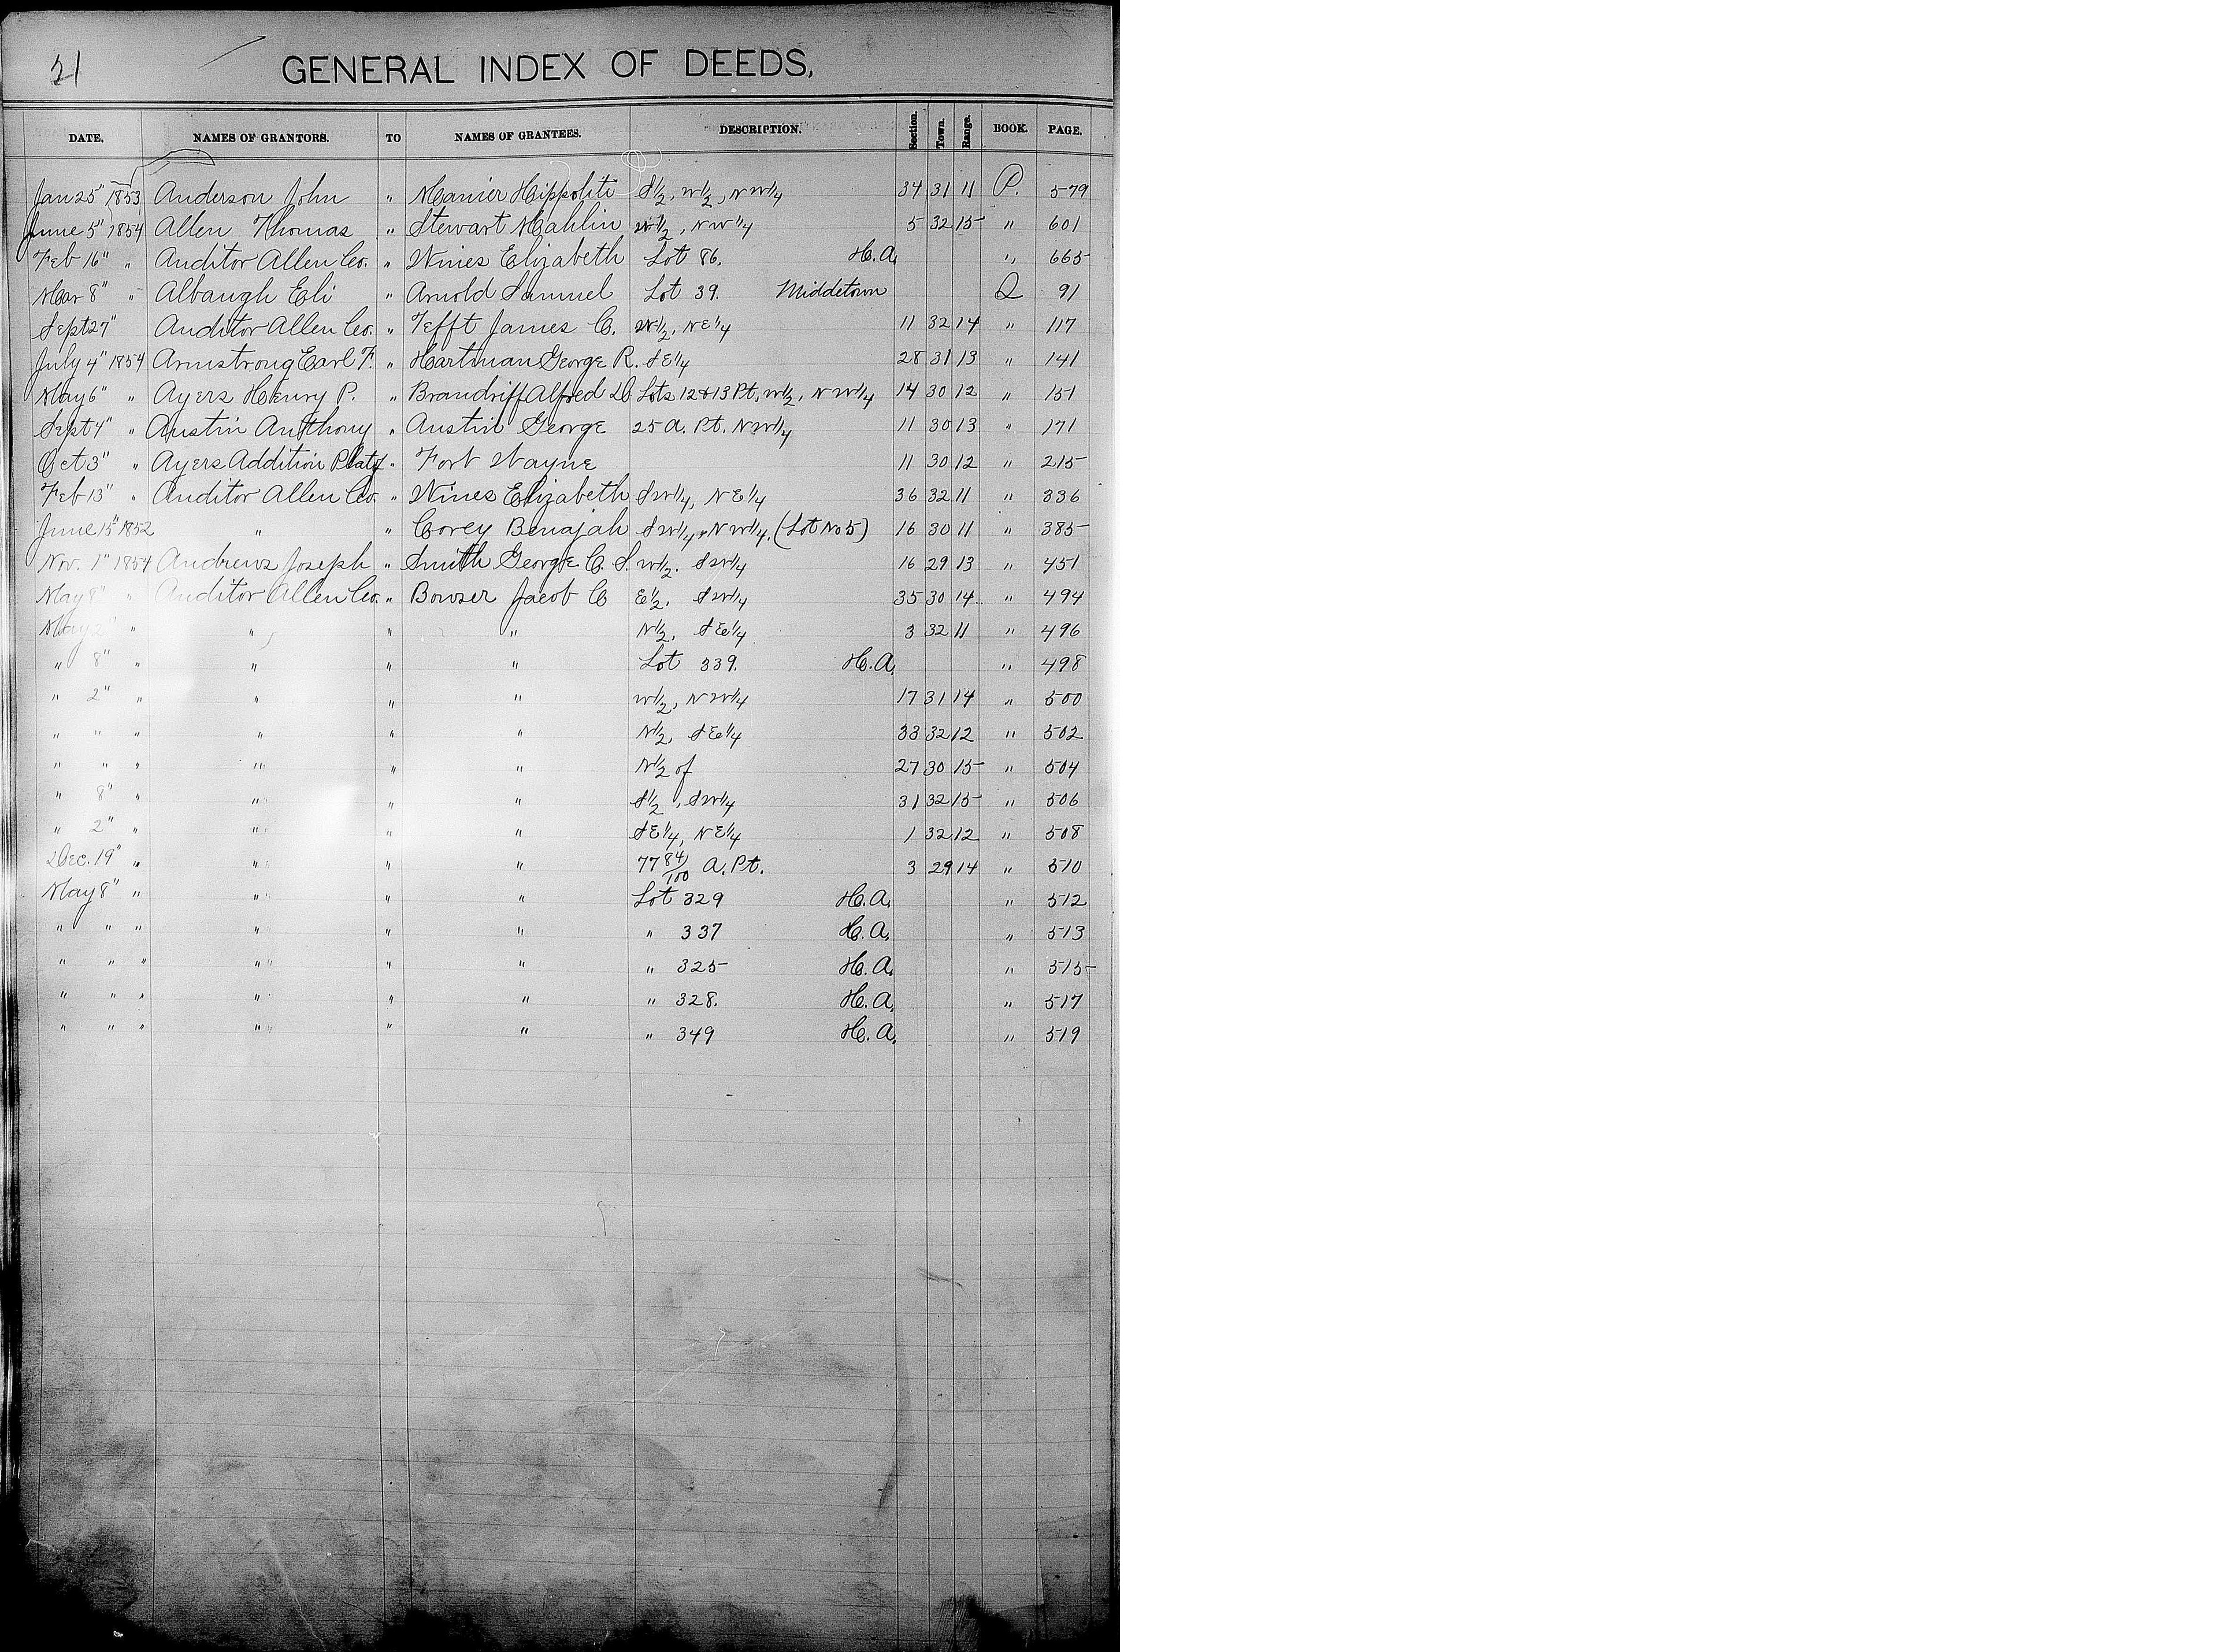 21
GENERAL INDEX OF DEEDS,
DATE. NAMES OF GRANTORS. TO NAMES OF GRANTEES. DESCRIPTION. Section. Town. Range. BOOK. PAGE.
Jan 25" 1853 Anderson John " Manier Hippolite S 1/2, W 1/2, N W 1/4 34 31 11 P. 579
June 5" 1854 Allen Thomas " Stewart Mahlin W 1/2, N W 1/4 5 32 15 " 601
Feb 16" " Auditor Allen Co. " Wines Elizabeth Lot 86. H. A. " 665
Mar 8" " Albaugh Eli " Arnold Samuel Lot 39. Middetown Q 91
Sept 27" Auditor Allen Co. " Tefft James C. W 1/2, N E 1/4 11 32 14 " 117
July 4" 1854 Armstrong Earl F. " Hartman George R. S E 1/4 28 31 13 " 141
May 6" " Ayers Henry P. " Brandriff Alfred D Lots 12 & 13 Pt, W 1/2, N W 1/4 14 30 12 " 151
Sept 4" " Austin Anthony " Austin George 25 A. Pt. N W 1/4 11 30 13 " 171
Oct 3" " Ayers Addition Plat of " Fort Wayne 11 30 12 " 215
Feb 13" " Auditor Allen Co. " Wines Elizabeth S W 1/4, N E 1/4 36 32 11 " 336
June 15" 1852 " " Corey Benajah S W 1/4 + N W 1/4, (Lot No 5) 16 30 11 " 385
Nov. 1" 1854 Andrews Joseph " Smith George C. S. W 1/2. S W 1/4 16 29 13 " 451
May 8" " Auditor Allen Co. " Bowser Jacob C E 1/2. S W 1/4 35 30 14 " 494
May 2" " " " " N 1/2, S E 1/4 3 32 11 " 496
" 8" " " " " Lot 339. H. A. " 498
" 2" " " " " W 1/2, N W 1/4 17 31 14 " 500
" " " " " " N 1/2, S E 1/4 33 32 12 " 502
" " " " " " N 1/2 of 27 30 15 " 504
" 8" " " " " S 1/2, S W 1/4 31 32 15 " 506
" 2" " " " " S E 1/4, N E 1/4 1 32 12 " 508
Dec. 19" " " " " 77 84/100 A. Pt. 3 29 14 " 510
May 8" " " " " Lot 329 H. A. " 512
" " " " " " " 337 H. A. " 513
" " " " " " " 325 H. A. " 515
" " " " " " " 328. H. A. " 517
" " " " " " " 349 H. A. " 519